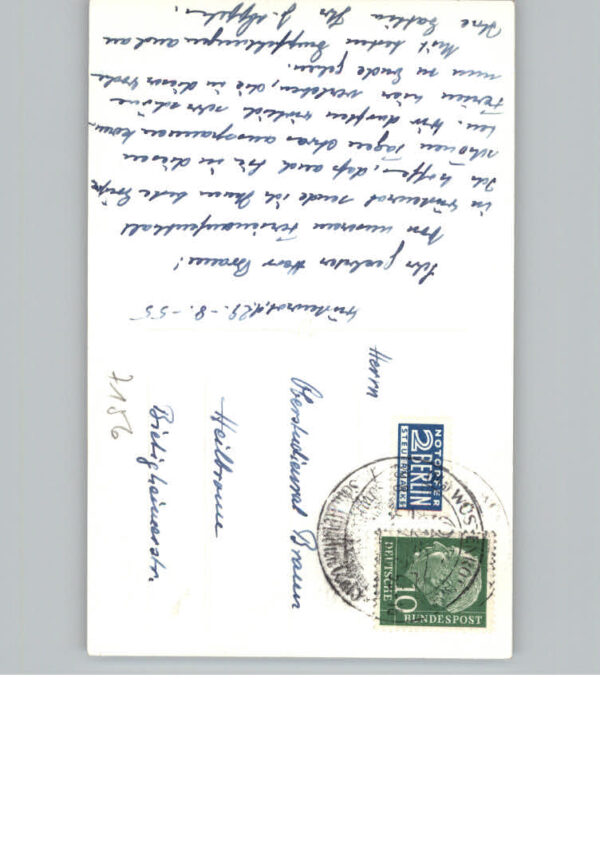 Wüstenrot, d. 29.-8.-55
Sehr geehrter Herr Braun!
Von unserem Ferienaufenthalt
in Wüstenrot sende ich Ihnen beste Grüße
Ich hoffe, daß auch Sie in diesen
schönen Tagen etwas ausspannen konn-
ten. Wir durften wirklich sehr schöne
Ferien hier verleben, die in dieser Woche
nun zu Ende gehen.
Mit besten Empfehlungen auch an
Ihre Gattin Ihr J.
Herrn
Oberstudienrat Braun
Heilbronn
Bietigheimerstr.
7186
NOTOPFER
2 BERLIN
STEUERMARKE
WÜSTENROT
DEUTSCHE
10
BUNDESPOST